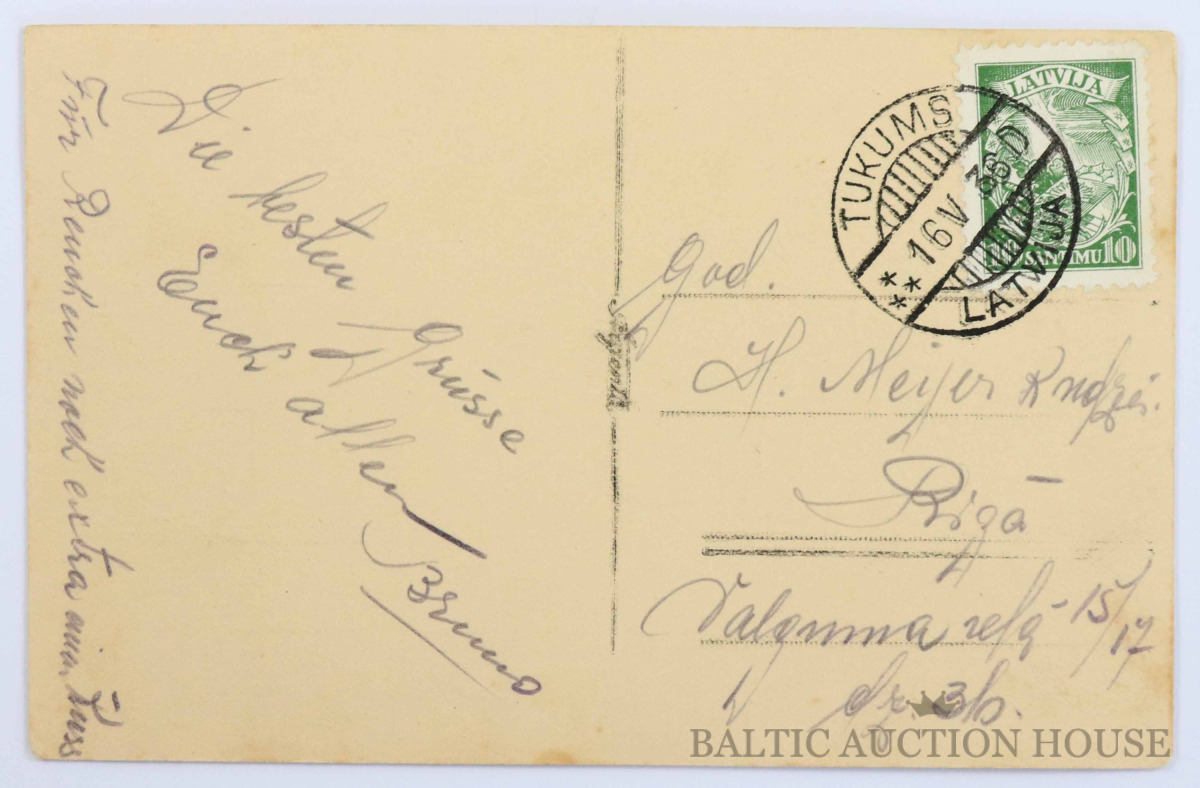 Die besten
Grüsse
Euch allen
Bruno
Für noch extra einen Kuss
LATVIJA
10 SANTIMU 10
TUKUMS
** 16 V 36 D
LATVIJA
God.
H. Meijer kndzei.
Rīgā
Valguma ielā 15/17
dz. 3b.
BALTIC AUCTION HOUSE